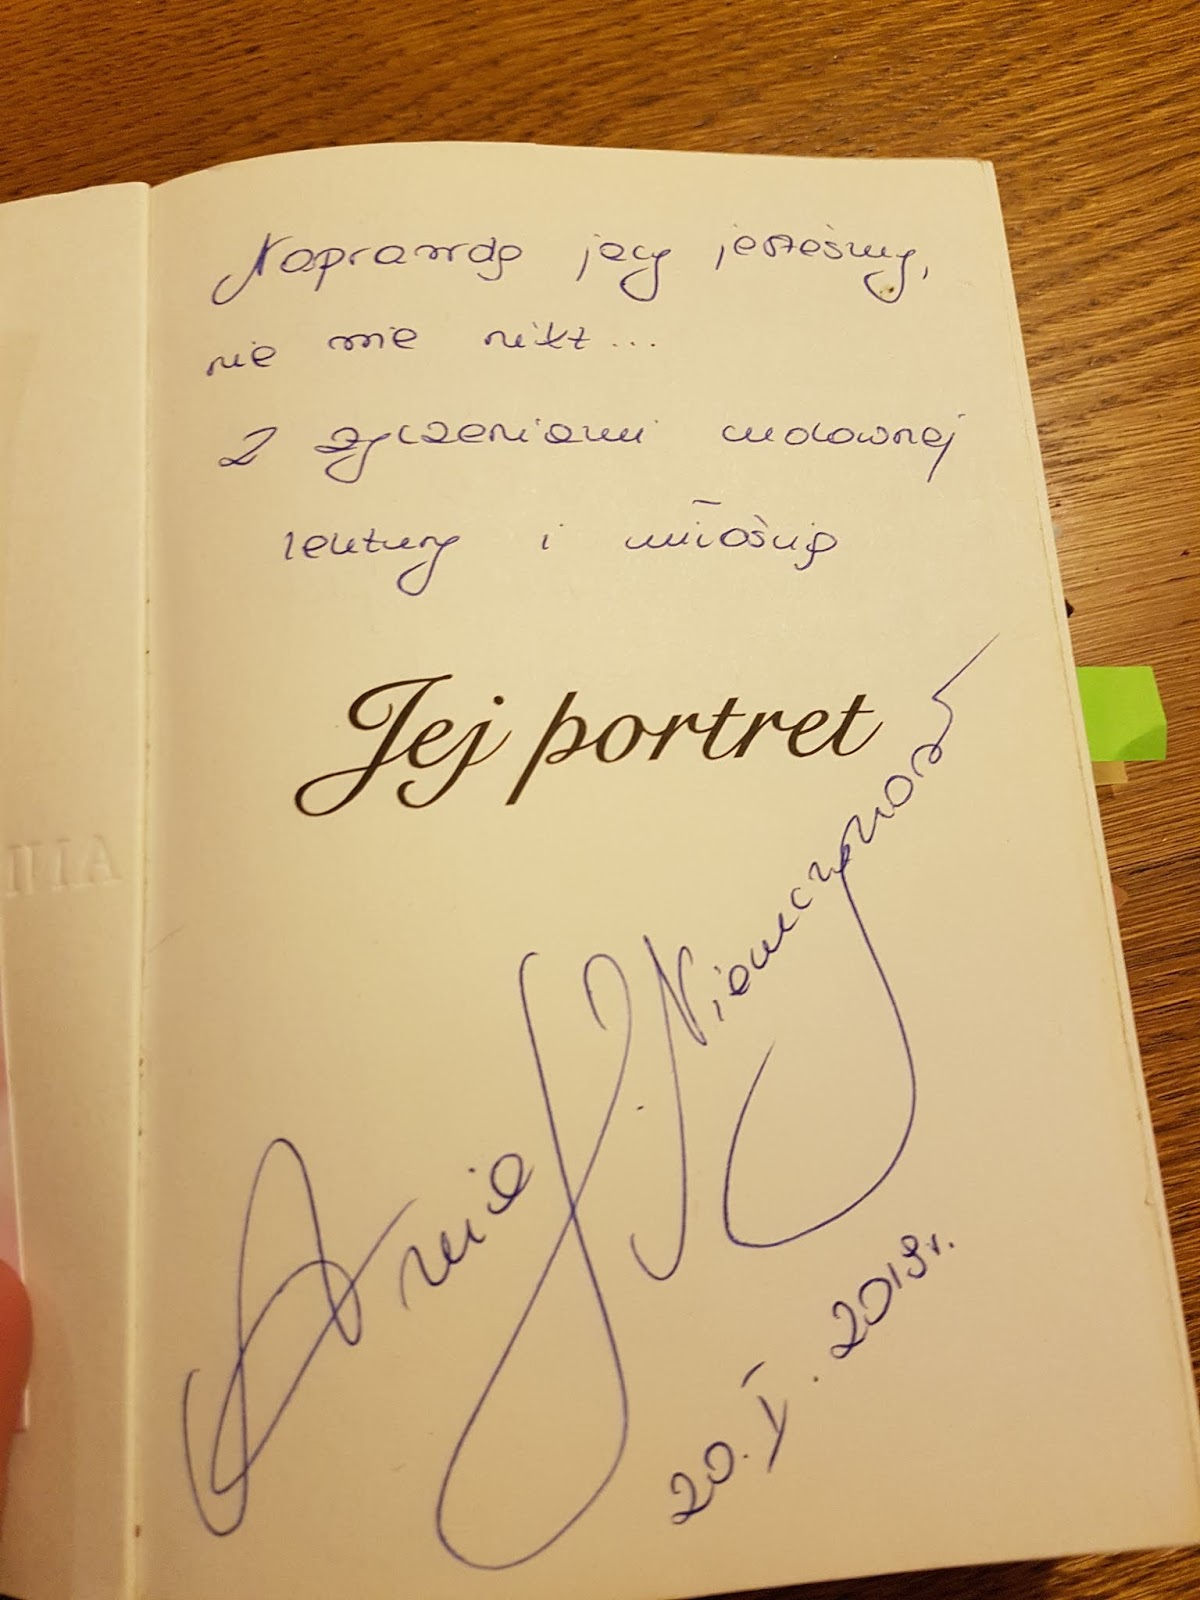 Naprawdę jacy jesteśmy,
nie wie nikt...
Z życzeniami cudownej
lektury i miłością
Jej portret
Ania J. Niemczynow
20.V.2019r.